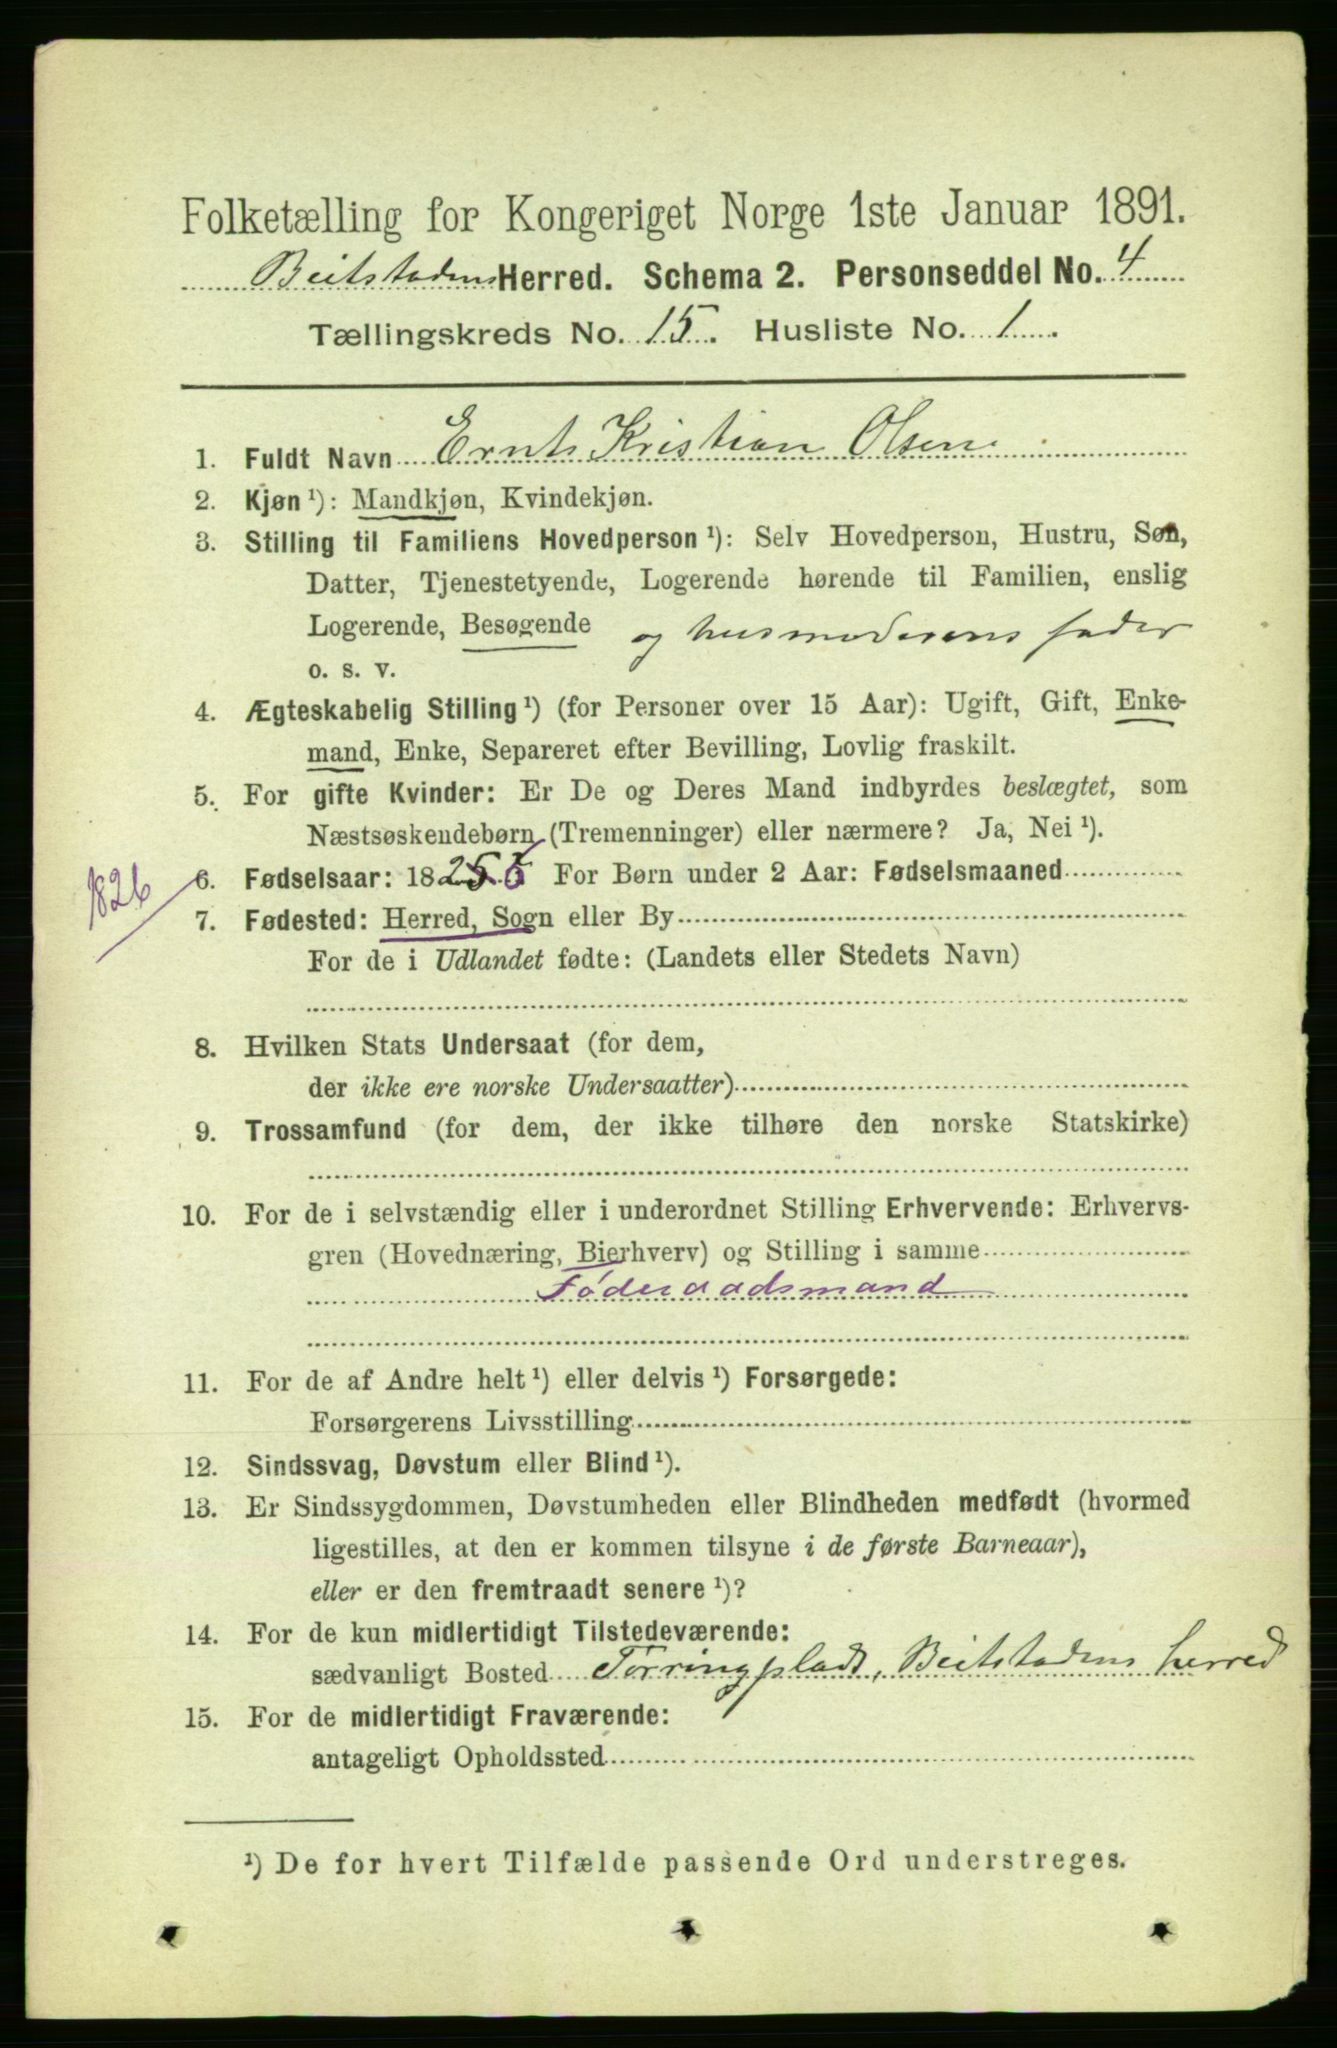 Folketælling for Kongeriget Norge 1ste Januar 1891.
Beitstadens Herred. Schema 2. Personseddel No. 4
Tællingskreds No. 15. Husliste No. 1.
1. Fuldt Navn Ernts Kristian Olsen
2. Kjøn ¹): Mandkjøn, Kvindekjøn.
3. Stilling til Familiens Hovedperson ¹): Selv Hovedperson, Hustru, Søn,
Datter, Tjenestetyende, Logerende hørende til Familien, enslig
Logerende, Besøgende og husmoderens fader
o. s. v.
4. Ægteskabelig Stilling ¹) (for Personer over 15 Aar): Ugift, Gift, Enke-
mand, Enke, Separeret efter Bevilling, Lovlig fraskilt.
5. For gifte Kvinder: Er De og Deres Mand indbyrdes beslægtet, som
Næstsøskendebørn (Tremenninger) eller nærmere? Ja, Nei ¹).
1826
6. Fødselsaar: 18 25 For Børn under 2 Aar: Fødselsmaaned
7. Fødested: Herred, Sogn eller By
For de i Udlandet fødte: (Landets eller Stedets Navn)
8. Hvilken Stats Undersaat (for dem,
der ikke ere norske Undersaatter)
9. Trossamfund (for dem, der ikke tilhøre den norske Statskirke)
10. For de i selvstændig eller i underordnet Stilling Erhvervende: Erhvervs-
gren (Hovednæring, Bierhverv) og Stilling i samme
Føderaadsmand
11. For de af Andre helt ¹) eller delvis ¹) Forsørgede:
Forsørgerens Livsstilling
12. Sindssvag, Døvstum eller Blind ¹).
13. Er Sindssygdommen, Døvstumheden eller Blindheden medfødt (hvormed
ligestilles, at den er kommen tilsyne i de første Barneaar),
eller er den fremtraadt senere ¹)?
14. For de kun midlertidigt Tilstedeværende:
sædvanligt Bosted Tørringplads, Beitstadens herred
15. For de midlertidigt Fraværende:
antageligt Opholdssted
¹) De for hvert Tilfælde passende Ord understreges.